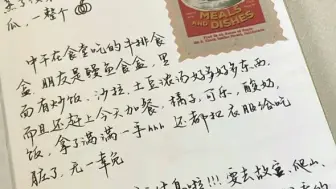 瓜,一整个
MEALS
AND
DISHES
中午在食堂吃的牛排食
盒,朋友是鳗鱼食盒,里
面有炒饭、沙拉、土豆浓汤好多好多东西,
而且还赶上今天加餐,橘子,可乐,酸奶,
饭,拿了满满一手hhh 还都和衣服给吃
脏了,无一幸免
息啦!!!要去故宫,爬山、